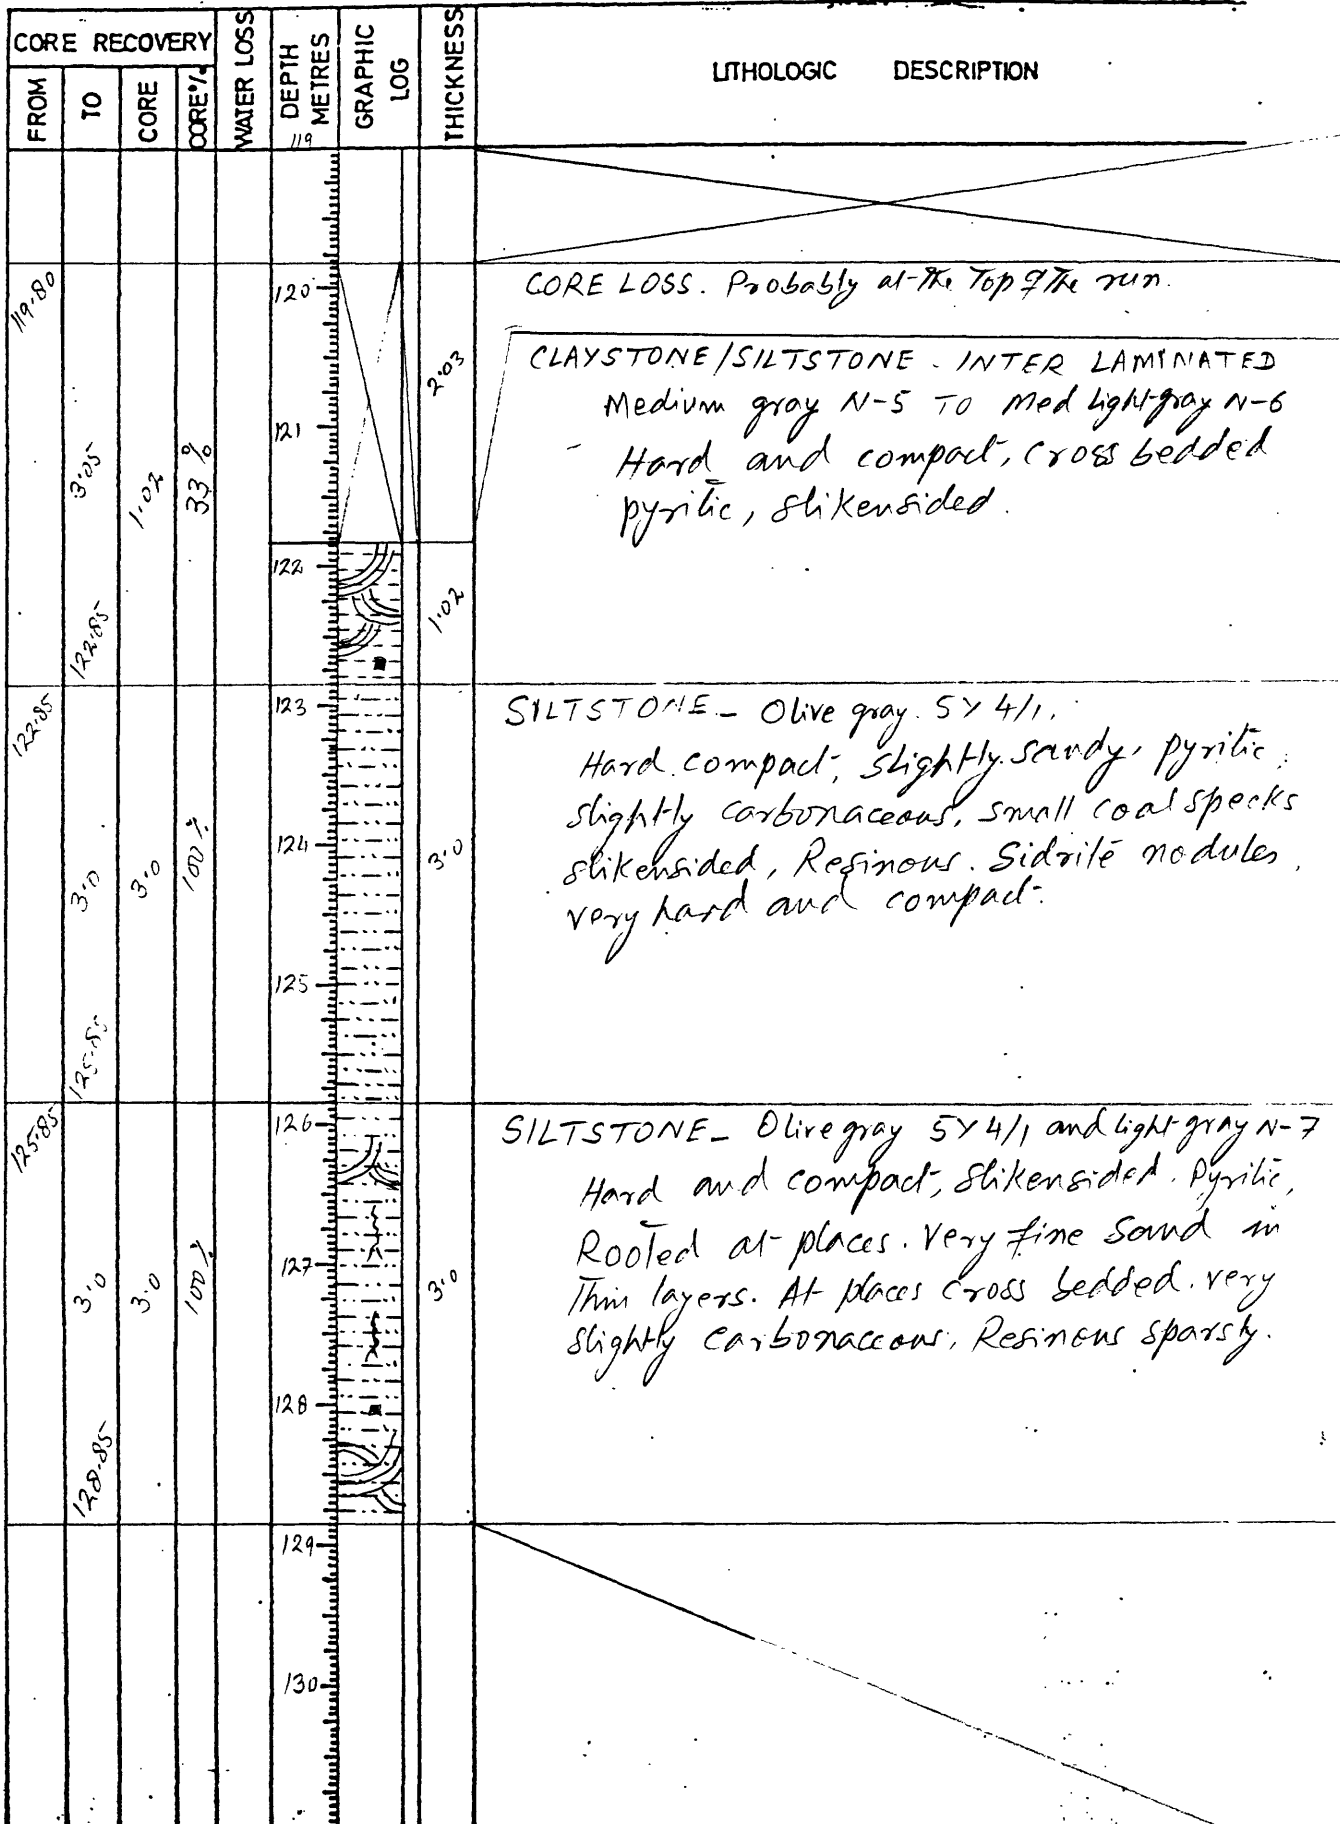 CORE RECOVERY
FROM
TO
CORE
CORE%
WATER LOSS
DEPTH METRES
119
GRAPHIC LOG
THICKNESS
LITHOLOGIC DESCRIPTION
119.80
3.05
122.85
1.02
33 %
120
121
122
2.03
1.02
CORE LOSS. Probably at the Top of the run.
CLAYSTONE/SILTSTONE. INTER LAMINATED
Medium gray N-5 TO Med light gray N-6
Hard and compact, cross bedded
pyritic, slikensided.
122.85
3.0
125.85
3.0
100%
123
124
125
3.0
SILTSTONE - Olive gray. 5Y 4/1.
Hard compact, slightly sandy, pyritic,
slightly carbonaceous, small coal specks
slikensided, Resinous. Sidrite nodules,
very hard and compact.
125.85
3.0
128.85
3.0
100%
126
127
128
3.0
SILTSTONE - Olive gray 5Y 4/1 and light gray N-7
Hard and compact, slikensided. Pyritic,
Rooted at places. Very fine sand in
Thin layers. At places cross bedded. very
slightly carbonaceous, Resinous sparsly.
129
130